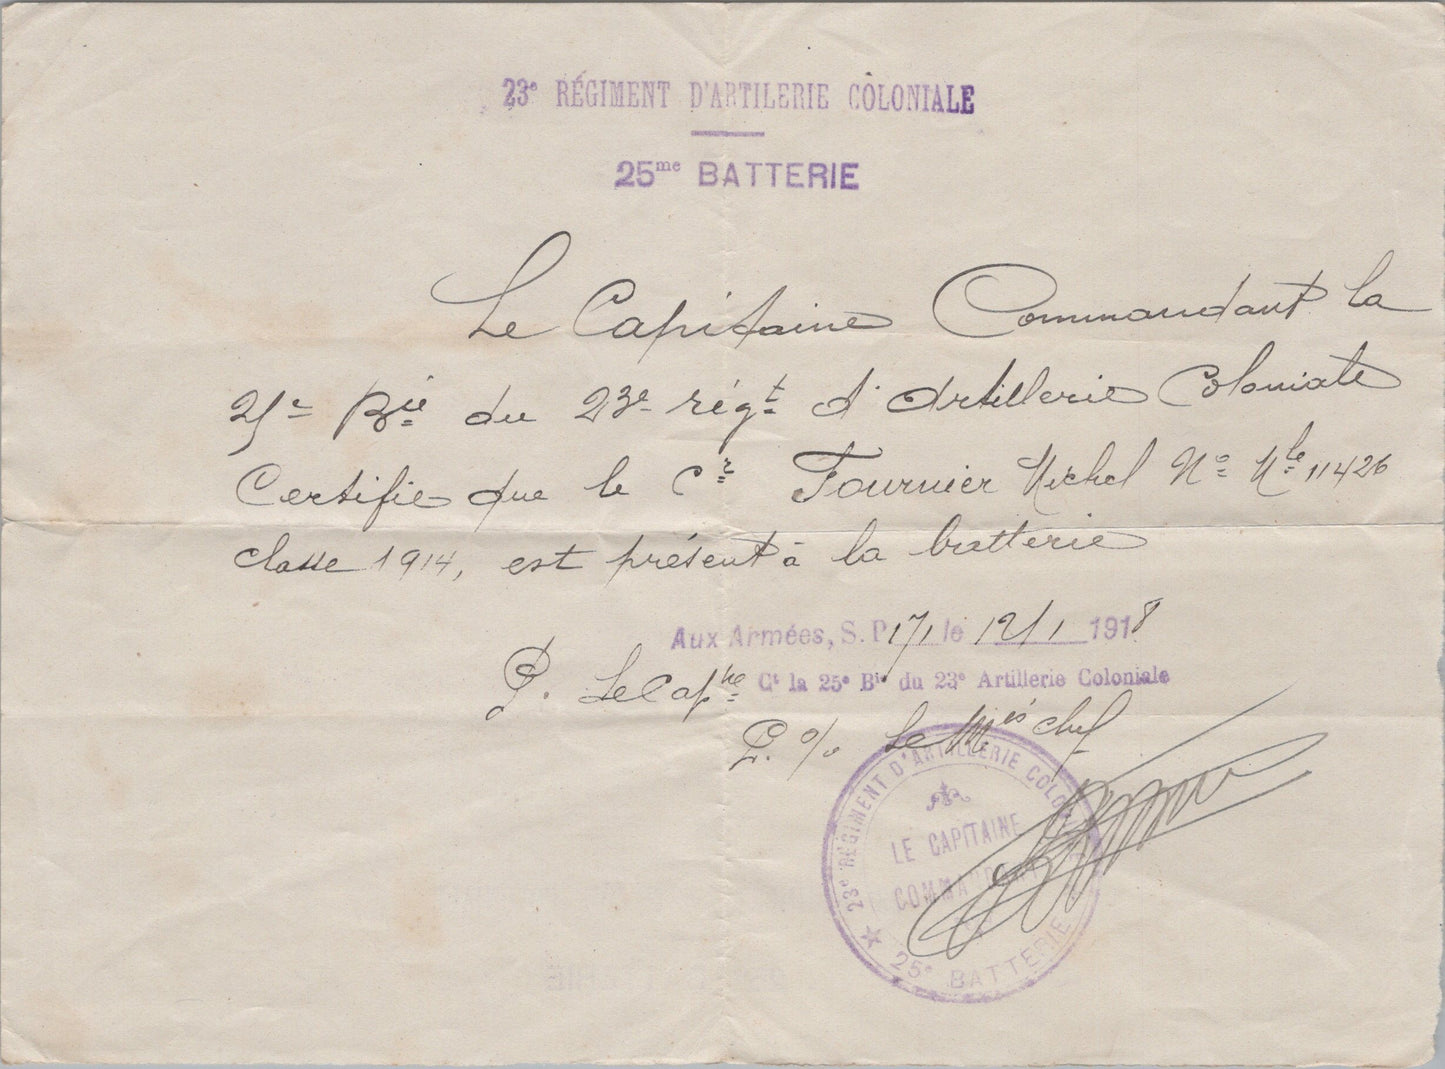 23e RÉGIMENT D'ARTILERIE COLONIALE
25me BATTERIE
Le Capitaine Commandant la
25e Bie du 23e régt d'Artillerie Coloniale
Certifie que le Cr Fournier Michel No Mle 11426
classe 1914, est présent à la batterie
Aux Armées, S. P. 171 le 12/1 1918
P. Le Capne Ct la 25e Bie du 23e Artillerie Coloniale
P. o/ Le Mis chef
23e RÉGIMENT D'ARTILLERIE COLONIALE
LE CAPITAINE
COMMANDANT
25e BATTERIE